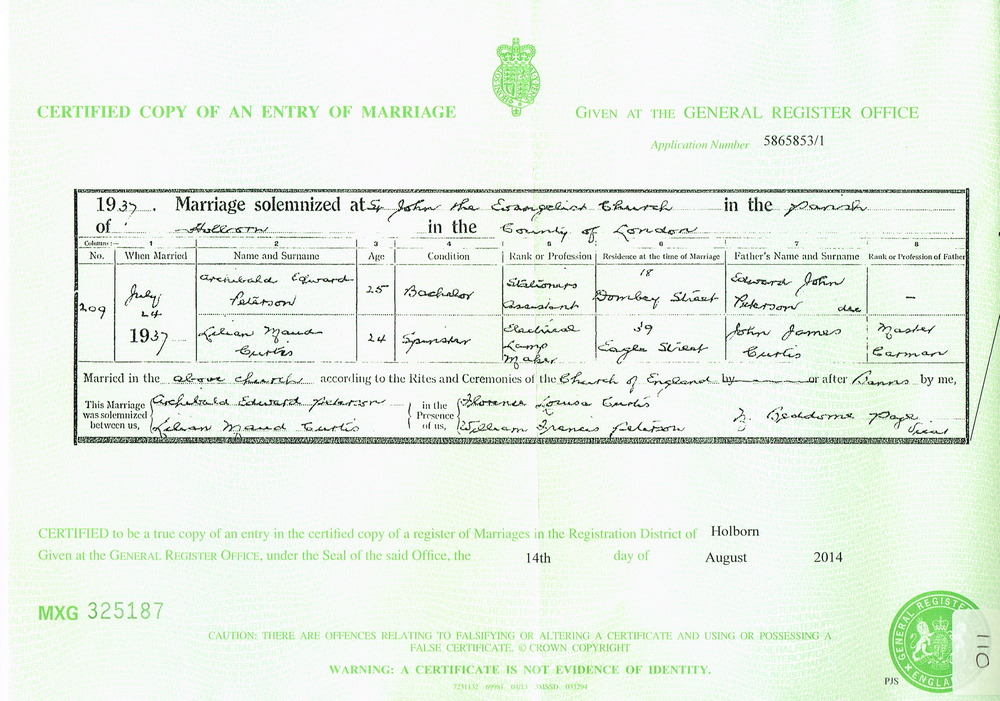 CERTIFIED COPY OF AN ENTRY OF MARRIAGE
GIVEN AT THE GENERAL REGISTER OFFICE
Application Number 5865853/1
1937. Marriage solemnized at St John the Evangelist Church in the Parish
of Holborn in the County of London
Columns:— 1 2 3 4 5 6 7 8
No. When Married Name and Surname Age Condition Rank or Profession Residence at the time of Marriage Father's Name and Surname Rank or Profession of Father
209 July 24 1937
Archibald Edward Peterson 25 Bachelor Stationers Assistant 18 Dombey Street Edward John Peterson dec —
Lilian Maud Curtis 24 Spinster Electrical Lamp Maker 39 Eagle Street John James Curtis Master Carman
Married in the above church according to the Rites and Ceremonies of the Church of England by — or after Banns by me,
This Marriage was solemnized between us,
Archibald Edward Peterson
Lilian Maud Curtis
in the Presence of us,
Florence Louisa Curtis
William Francis Peterson
Beddome Page
Vicar
CERTIFIED to be a true copy of an entry in the certified copy of a register of Marriages in the Registration District of Holborn
Given at the GENERAL REGISTER OFFICE, under the Seal of the said Office, the 14th day of August 2014
MXG 325187
CAUTION: THERE ARE OFFENCES RELATING TO FALSIFYING OR ALTERING A CERTIFICATE AND USING OR POSSESSING A
FALSE CERTIFICATE. © CROWN COPYRIGHT
WARNING: A CERTIFICATE IS NOT EVIDENCE OF IDENTITY.
PJS
GENERAL REGISTE
ENGLA
110